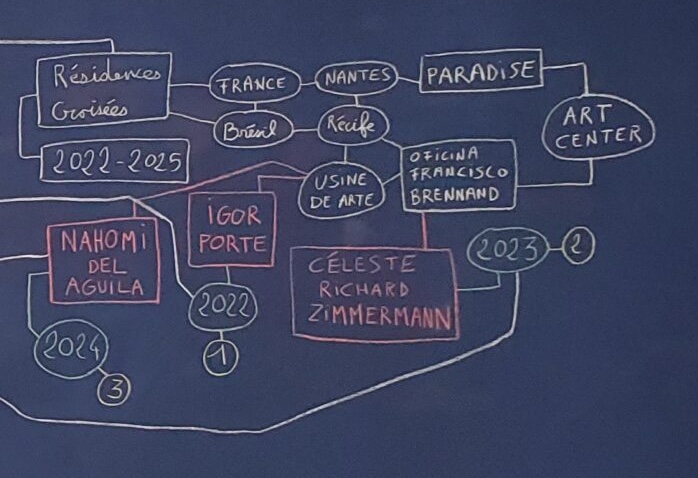 Résidences
Croisées
2022-2025
FRANCE
NANTES
PARADISE
Brésil
Récife
ART
CENTER
USINE
DE ARTE
OFICINA
FRANCISCO
BRENNAND
NAHOMI
DEL
AGUILA
IGOR
PORTE
CÉLESTE
RICHARD
ZIMMERMANN
2023
2
2022
1
2024
3